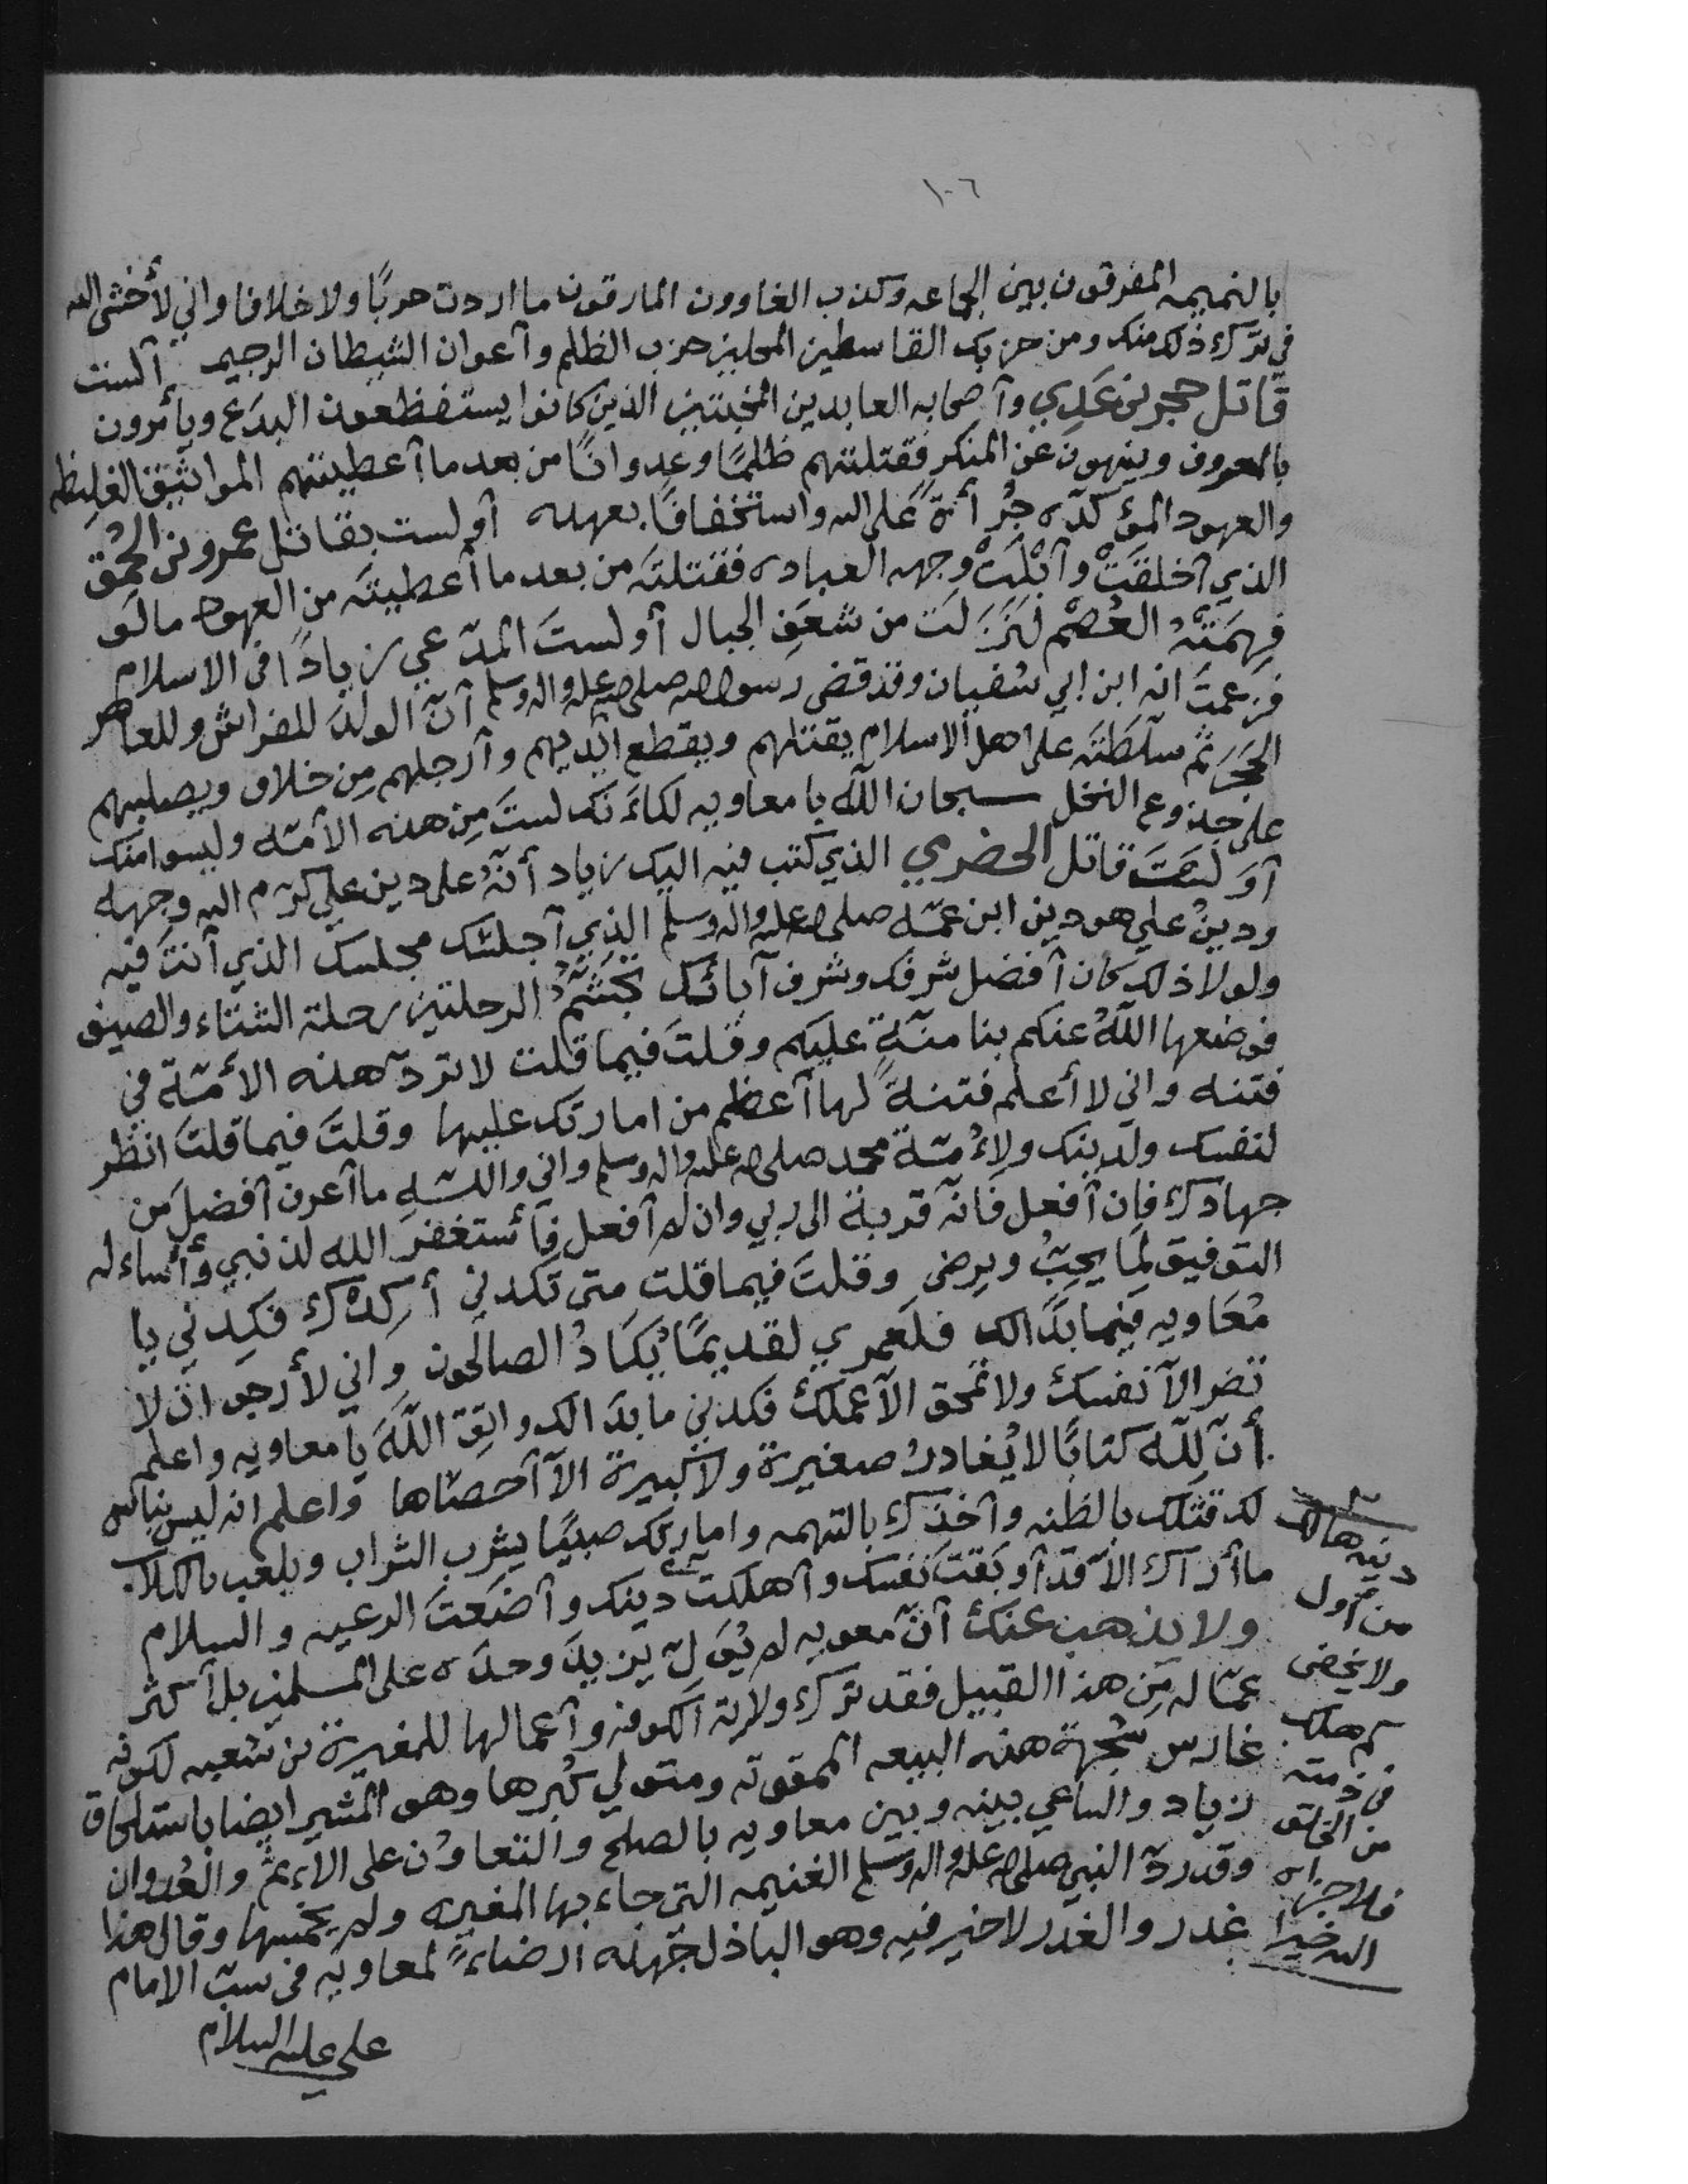 ١٠٦
بالنميمه المفرقون بين الجماعه وكذب الغاوون المارقون ما اردت حربًا ولا خلافا واني لأخشى الله
في ترك ذلك منك ومن حزبك القاسطين المحلين حزب الظلم وآعوان الشيطان الرجيم ألست
قاتل حجر بن عَدِي وآصحابه العابدين المخبتين الذين كانوا يستفظعون البدَع ويأمرون
بالمعروف وينهون عن المنكر فقتلتهم ظلمًا وعدوانًا من بعد ما آعطيتهم المواثيق الغليظه
والعهود المؤكدّه جُرأةً على الله واستخفافًا بعهده أولست بقاتل عمرو بن الحمق
الذي آخلقَتْ وآبْلَتْ وجهه العباده فقتلتَه من بعد ما أعطيتَه من العهود ما لَو
فهمَتْهُ العُصْم لنَزَلَت من شعَفِ الجبال أولستَ المدّعي زيادًا في الاسلام
فزعمتَ انه ابن ابي سفيان وقد قضى رسول الله صلى الله عليه واله وسلم آنّ الولد للفراش وللعاهر
الحجَر ثم سلّطتَه على اهل الاسلام يقتلهم ويقطع آيديهم وآرجلهم مِن خلاف ويصلبهم
على جذوع النخل سبحان الله يا معاويه لكأنّك لستَ مِن هذه الأمّه وليسوا منك
آوَ لَستَ قاتل الحضرمي الذي كتب فيه اليك زياد أنّهُ على دين علي كرّم الله وجهه
ودينُ علي هو دين ابن عمّه صلى الله عليه واله وسلم الذي آجلسَك مجلسك الذي آنتَ فيه
ولولا ذلك كان آفضل شرفك وشرف آبائك تجَشُّمُ الرحلتين رحلة الشتاء والصيف
فوضعها اللهُ عنكم بنا منّةً عليكم وقلتَ فيما قلت لا تردّ هذه الأمّة في
فتنه واني لا أعلم فتنةً لها آعظم من امارتك عليها وقلتَ فيما قلتَ انظر
لنفسك ولدينك ولأمّة محمد صلى الله عليه واله وسلم واني والله ما آعرف آفضلَ من
جهادك فإن آفعل فَانّه قربة الى ربي وان لم آفعل فآستغفر الله لذنبي وأسأله
التوفيق لمَا يحبّ ويرضى وقلتَ فيما قلت متى تكدني أكدْك فكِدني يا
مُعَاويه فيما بدَا لك فلَعمري لقديمًا يُكادُ الصالحون واني لأرجو آن لا
تضر الآ نفسك ولا تمحق الآ عملك فكدني ما بدَا لك واتقِ اللهَ يا معاويه واعلم
أنّ لله كتابًا لا يُغادرُ صغيرة ولا كبيرة الآ آحصَاها واعلم انه ليس بناس
لك قتلك بالظنه وآخذك بالتهمه وامارتك صبيًا يشرب الشراب ويلعب بالكلاب
ما أراك الآ قد آوبَقتَ نفسك وآهلكت دينك وآضَعتَ الرعيه والسلام
ولا يذهب عنك آنّ معويه لم يُوَلّ يزيدَ وحدَه على المسلمين بل آكثر
عمّاله مِن هذا القبيل فقد ترك ولاية الكوفه وآعمالها للمغيرة بن شعبه لكونه
غارس شجرة هذه البيعه الممقوته ومتولي كبرها وهو المشير ايضا باستلحاق
زياد والساعي بينه وبين معاويه بالصلح والتعاوُن على الإثم والعُدوان
وقد ردّ النبي صلى الله عليه واله وسلم الغنيمه التي جاء بها المغيره ولم يخمسها وقال هذا
غدر والغدر لا خير فيه وهو الباذل جَهده ارضاءً لمعاويه في سبّ الامام
علي عليه السلام
دينه هالك
من أول
ولا يخفى
كم هلك
في ذمته
من الخلق
فلا جزاه
الله خيرا